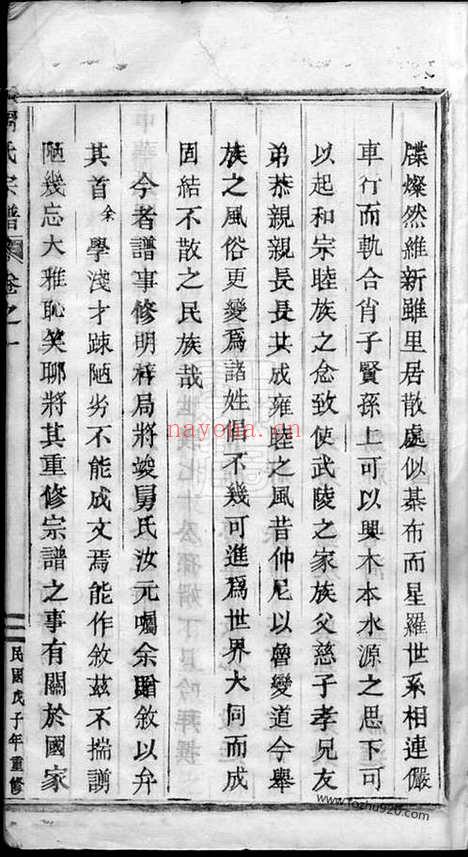 牒燦然維新雖里居散處似棊布而星羅世系相連儼
車行而軌合肖子賢孫上可以興木本水源之思下可
以起和宗睦族之念致使武陵之家族父慈子孝兄友
弟恭親親長長共成雍睦之風昔仲尼以魯變道今舉
族之風俗更變為諸姓倡不幾可進為世界大同而成
固結不散之民族哉
今者譜事修明梓局將竣舅氏汝元囑余贈敘以弁
其首余學淺才疎陋劣不能成文焉能作敘茲不揣謭
陋幾忘大雅恥笑聊將其重修宗譜之事有關於國家
氏宗譜 卷之一
民國戊子年重修
nayona.cn
www.fozhu920.com